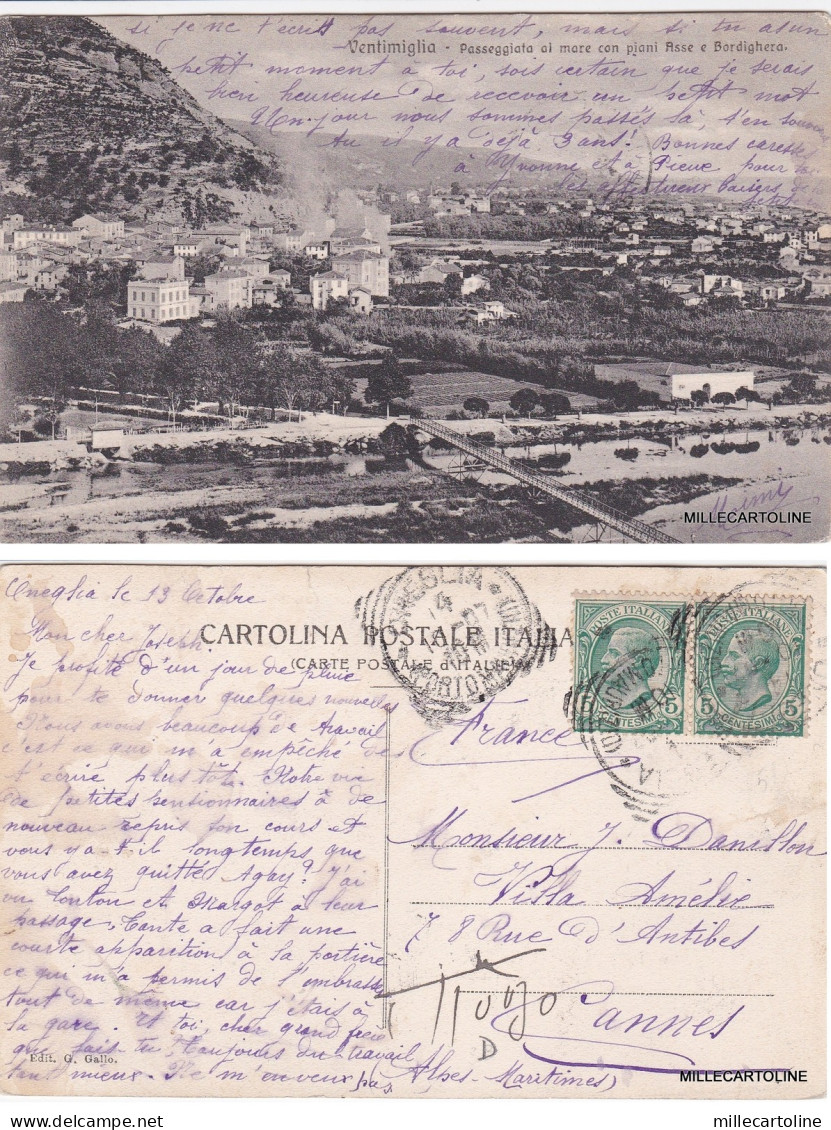 si je ne t'écris pas souvent, mais si tu as un
Ventimiglia - Passeggiata al mare con piani Asse e Bordighera.
petit moment à toi, sois certain que je serais
bien heureuse de recevoir un petit mot
Un jour nous sommes passés là, t'en souviens
tu il y a déjà 3 ans! Bonnes caresses
à Yvonne et à Pierre pour
les affectueux baisers de
petite
MILLECARTOLINE
Oneglia le 13 Octobre
Mon cher Joseph,
CARTOLINA POSTALE ITALIANA
(CARTE POSTALE d'ITALIE)
Je profite d'un jour de pluie
pour te donner quelques nouvelles
Nous avons beaucoup de travail
c'est ce qui m'a empêché de
t'écrire plus tôt. Notre vie
de petites pensionnaires a de
nouveau repris son cours et
vous y a-t-il longtemps que
vous avez quitté Agay? J'ai
vu Tonton et Margot à leur
passage, Tante a fait une
courte apparition à la portière
ce qui m'a permis de l'embrasser
tout de même car j'étais à
la gare. Et toi, cher grand frère
que fais-tu, toujours du travail
tant mieux. Ne m'en veux pas,
Edit. G. Gallo.
ONEGLIA
POSTE ITALIANE
5 CENTESIMI 5
POSTE ITALIANE
5 CENTESIMI 5
France
Monsieur J. Danillon
Villa Amélie
78 Rue d'Antibes
Cannes
(Alpes-Maritimes)
D
MILLECARTOLINE
millecartoline
millecartoline